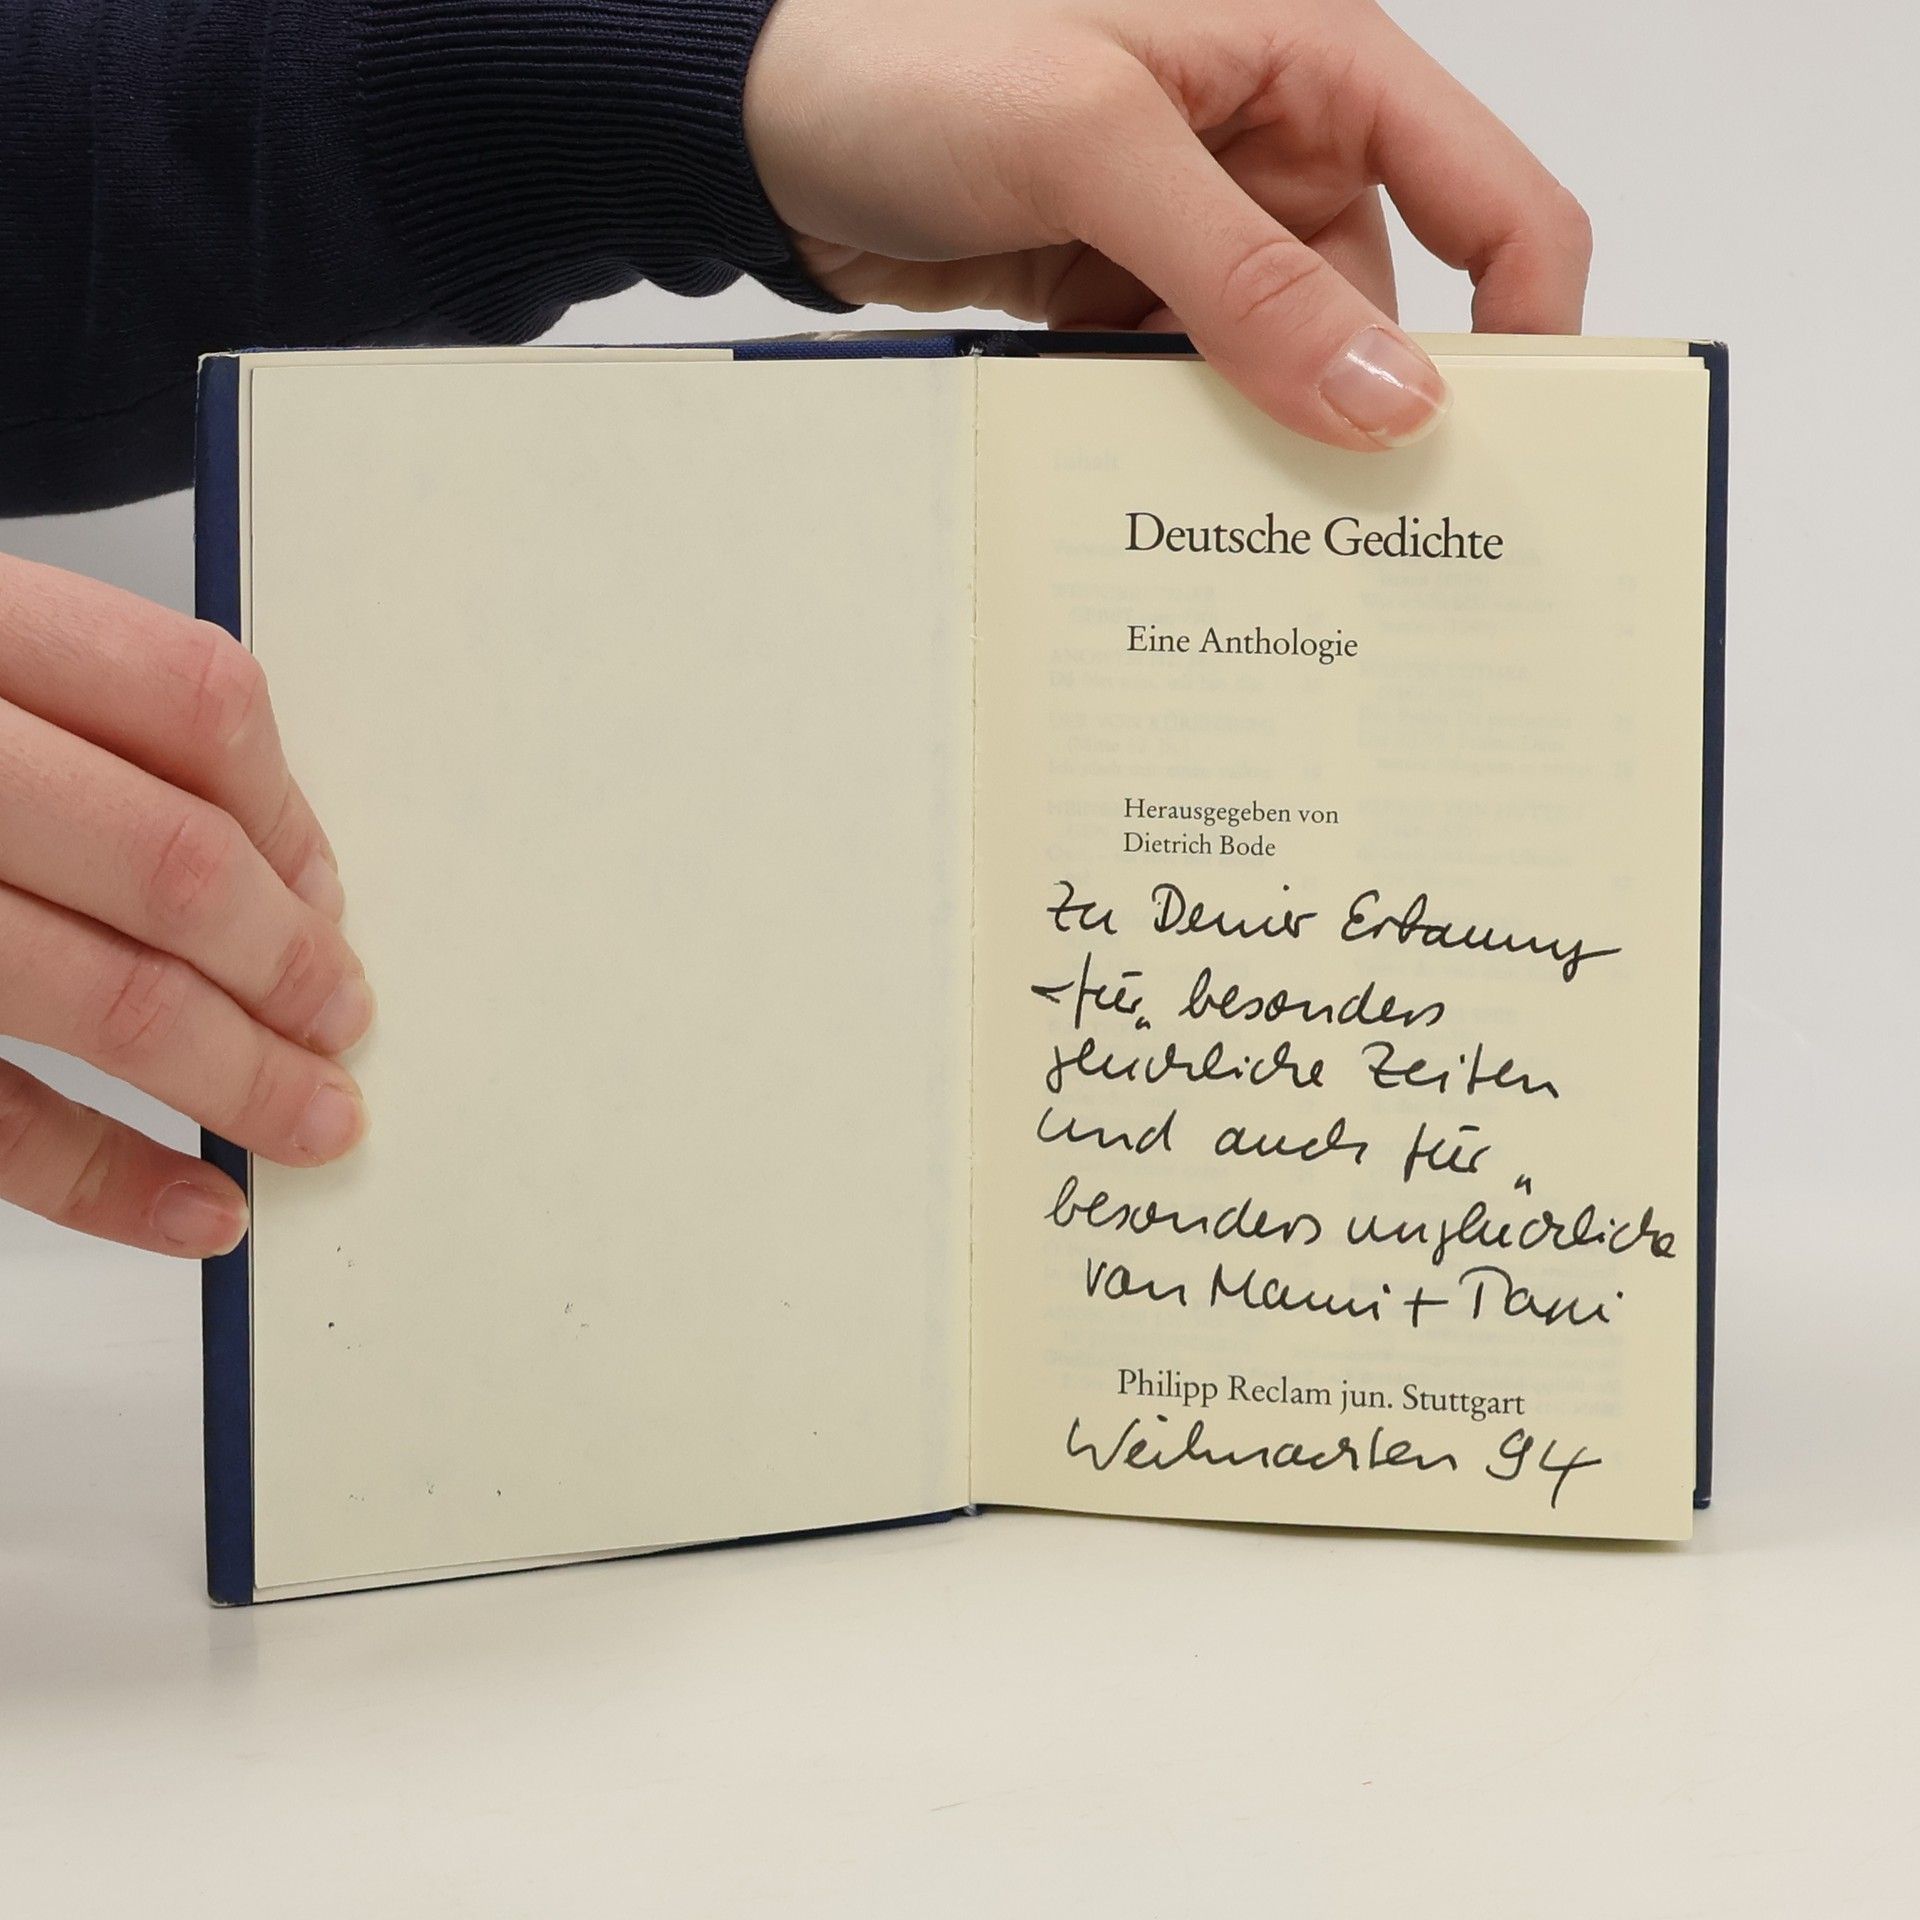 Deutsche Gedichte
Eine Anthologie
Herausgegeben von
Dietrich Bode
Zu Deiner Erbauung
– für besonders
glückliche Zeiten
und auch für
besonders unglückliche
von Mami + Papi
Philipp Reclam jun. Stuttgart
Weihnachten 94